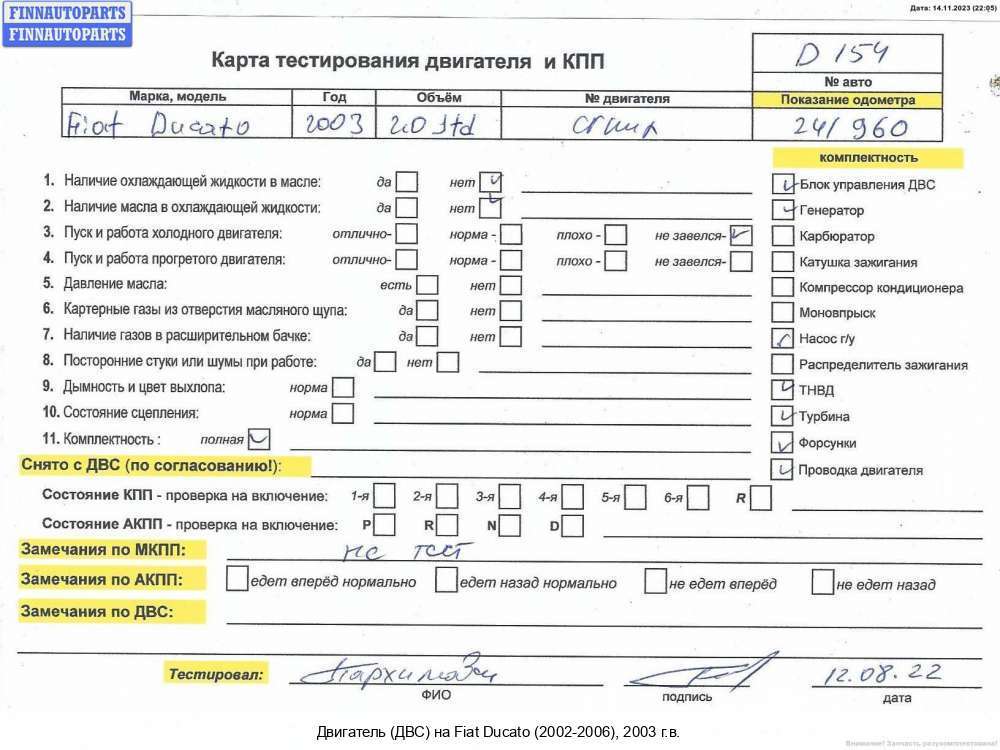 Дата: 14.11.2023 (22:05)
FINNAUTOPARTS
FINNAUTOPARTS
Карта тестирования двигателя и КПП
D 154
№ авто
Марка, модель Год Объём № двигателя Показание одометра
Fiat Ducato 2003 2.0 Jtd 241960
комплектность
1. Наличие охлаждающей жидкости в масле: да нет
Блок управления ДВС
2. Наличие масла в охлаждающей жидкости: да нет
Генератор
3. Пуск и работа холодного двигателя: отлично- норма - плохо - не завелся-
Карбюратор
4. Пуск и работа прогретого двигателя: отлично- норма - плохо - не завелся-
Катушка зажигания
5. Давление масла: есть нет
Компрессор кондиционера
6. Картерные газы из отверстия масляного щупа: да нет
Моновпрыск
7. Наличие газов в расширительном бачке: да нет
Насос г/у
8. Посторонние стуки или шумы при работе: да нет
Распределитель зажигания
9. Дымность и цвет выхлопа: норма
ТНВД
10. Состояние сцепления: норма
Турбина
11. Комплектность : полная
Форсунки
Снято с ДВС (по согласованию!):
Проводка двигателя
Состояние КПП - проверка на включение: 1-я 2-я 3-я 4-я 5-я 6-я R
Состояние АКПП - проверка на включение: P R N D
Замечания по МКПП: не тест
Замечания по АКПП: едет вперёд нормально едет назад нормально не едет вперёд не едет назад
Замечания по ДВС:
Тестировал: 12.08.22
ФИО подпись дата
Двигатель (ДВС) на Fiat Ducato (2002-2006), 2003 г.в.
Внимание! Запчасть разукомплектована!